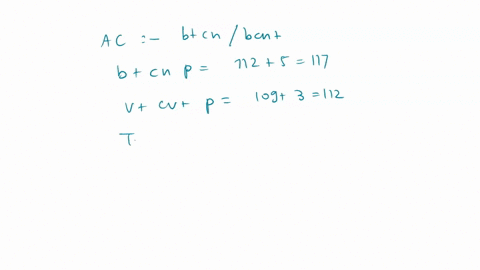 AC :- b+cn / bcn+
b+cn p = 112+5 = 117
v+ cv+ p = 109+ 3 = 112
T